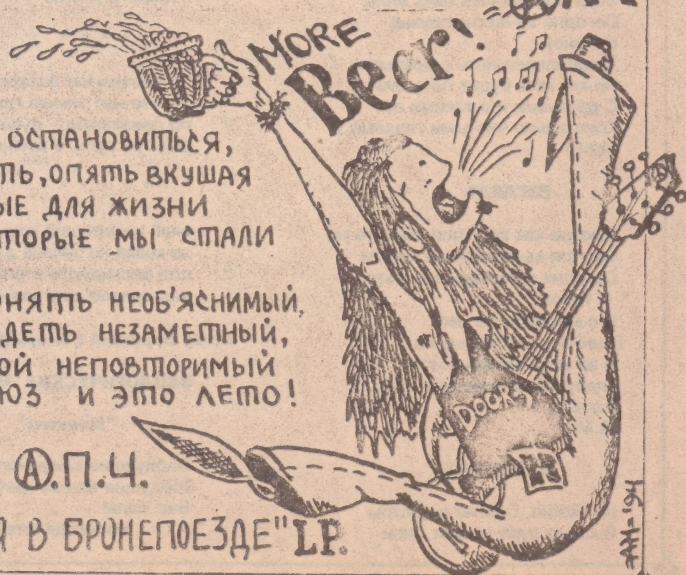 MORE
Beer!
ОСТАНОВИТЬСЯ,
ТЬ, ОПЯТЬ ВКУШАЯ
ЫЕ ДЛЯ ЖИЗНИ
ТОРЫЕ МЫ СТАЛИ
ОНЯТЬ НЕОБ'ЯСНИМЫЙ,
ДЕТЬ НЕЗАМЕТНЫЙ,
ОЙ НЕПОВТОРИМЫЙ
ЮЗ И ЭТО ЛЕТО!
DOORS
Ⓐ.П.Ч.
Я В БРОНЕПОЕЗДЕ" LP.